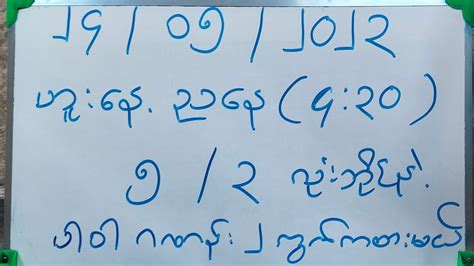 ၂၄ / ၀၅ / ၂၀၂၃
ဟူးနေ့ ညနေ (၄:၃၀)
၅ / ၃ လုံးဘိုင်
ပါဝါ ဂဏန်း ၂ ကွက်ကစားမယ်